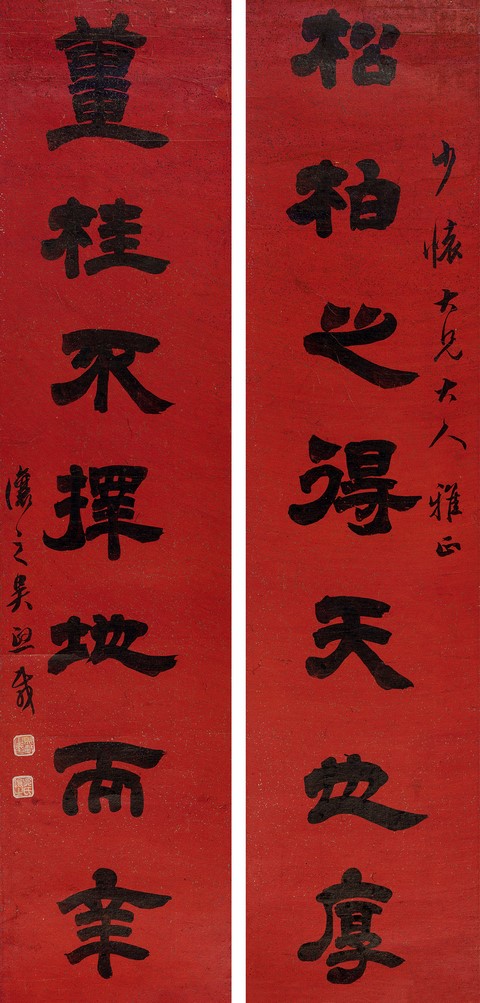 少懷大兄大人雅正
松柏之得天也厚
薑桂不擇地而辛
讓之吳熙載